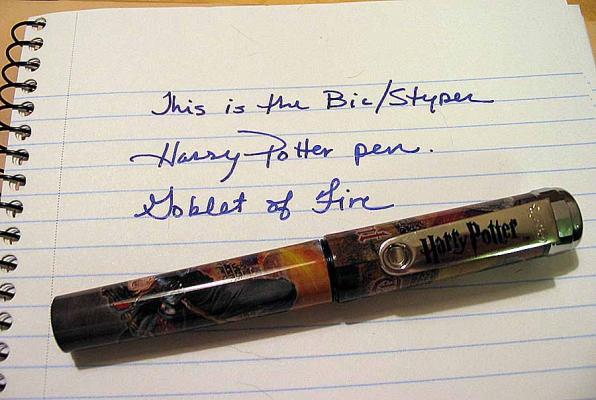 This is the Bic/Stypen
Harry Potter pen.
Goblet of Fire
Harry Potter